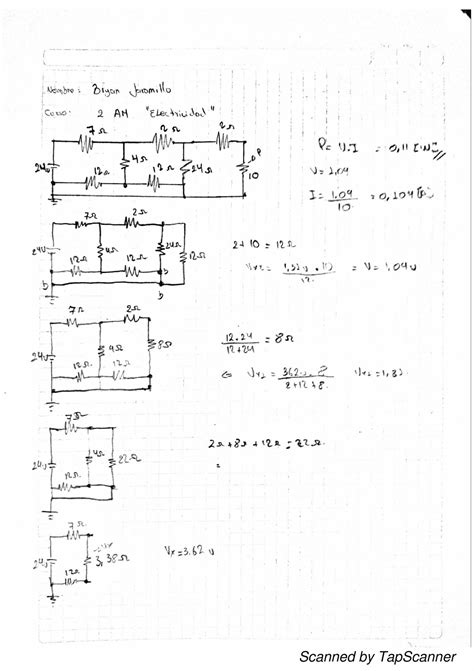 Nombre : Bryan Jaramillo
Curso: 2 AM "Electricidad"
7Ω 2Ω 2Ω
24v 4Ω 24Ω 10
12Ω 12Ω
P= V.I = 0,11 [W]
V= 1.09
I = 1.09 / 10 = 0,109 [A]
7Ω 2Ω
24v 4Ω 24Ω 12Ω
12Ω 12Ω
b b b
2+10 = 12Ω
= V= 1,09v
7Ω 2Ω
24v 4Ω 8Ω
12Ω 12Ω
12.24 / 12+24 = 8Ω
Vx2 = 3.62v.8 / 2+12+8 Vx2=1,32
7Ω
24v 4Ω 22Ω
12Ω
2Ω+8Ω+12Ω=22Ω
=
7Ω
24v 3,38Ω
12Ω
Vx=3.62 v
Scanned by TapScanner